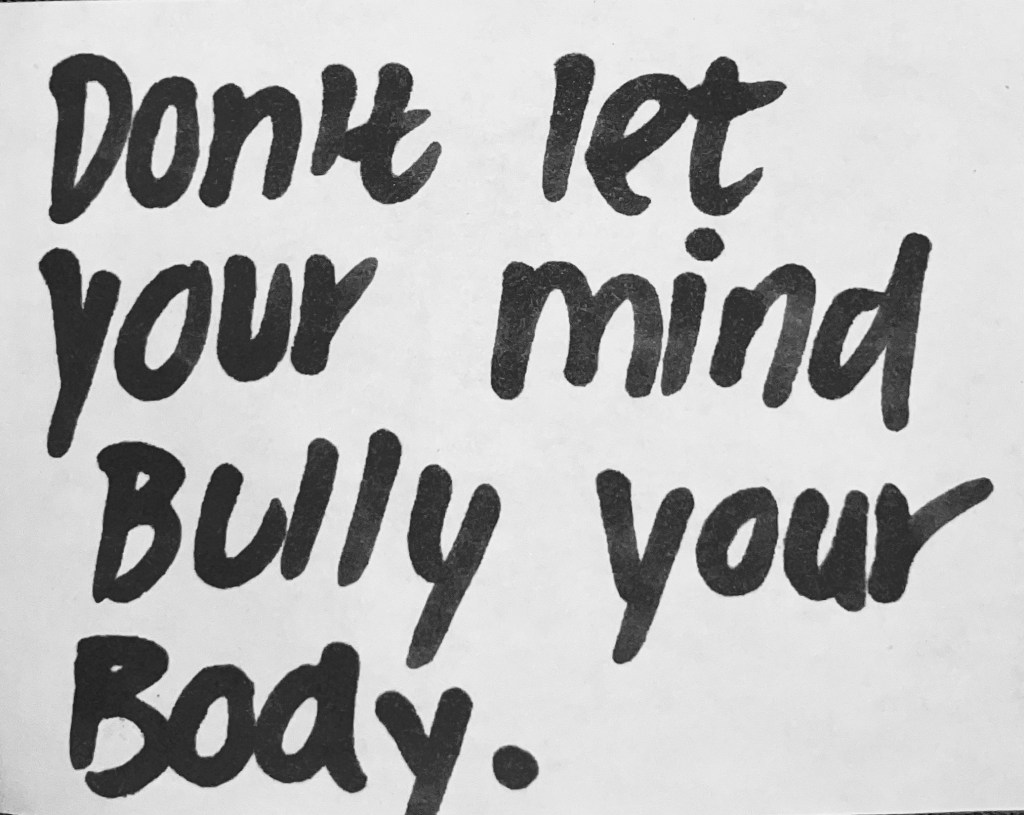 Don't let
your mind
Bully your
Body.